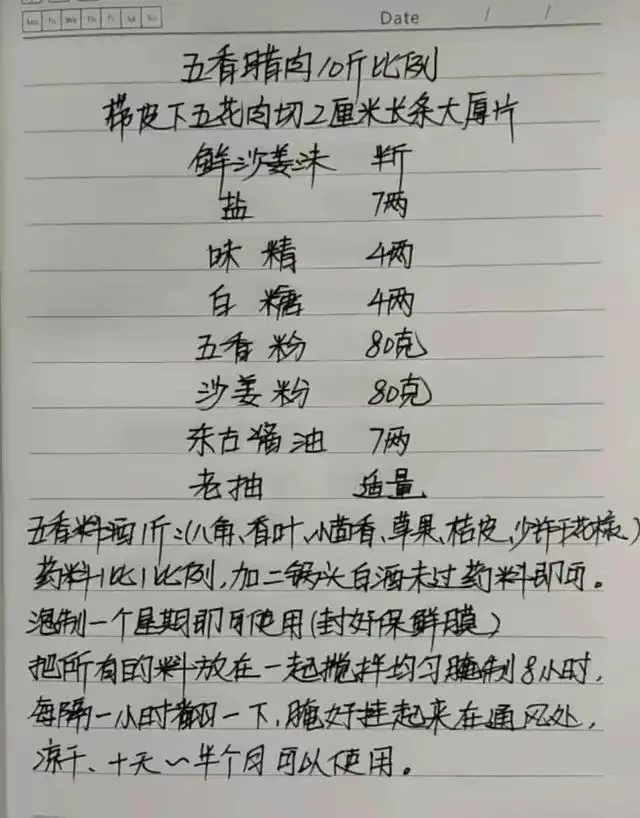 Mo Tu We Th Fr Sa Su
Date / /
五香腊肉10斤比例
带皮下五花肉切2厘米长条大厚片
鲜沙姜沫 半斤
盐 7两
味精 4两
白糖 4两
五香粉 80克
沙姜粉 80克
东古酱油 7两
老抽 适量
五香料酒1斤:(八角、香叶、小茴香、草果、桔皮、少许干花椒、)
药料1比1比例,加二锅头白酒未过药料即可。
泡制一个星期即可使用(封好保鲜膜)
把所有的料放在一起搅拌均匀腌制8小时,
每隔一小时翻一下,腌好挂起来在通风处,
凉干、十天~半个月可以使用。